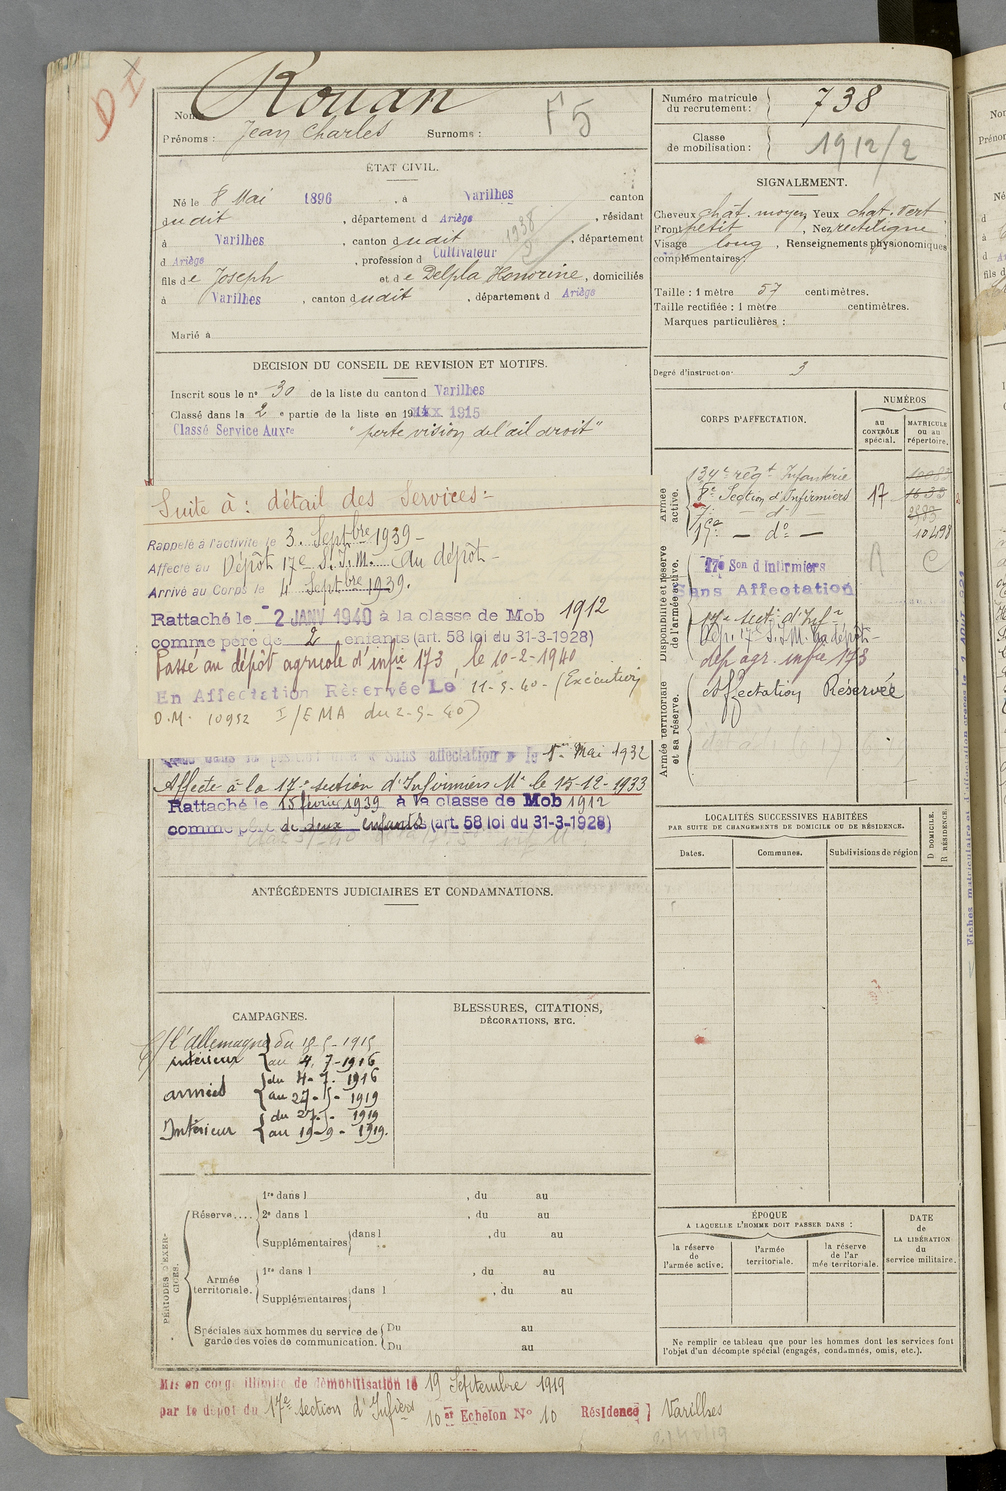 DI
Nom Rouan
Prénoms : Jean Charles Surnoms :
F5
Numéro matricule du recrutement : 738
Classe de mobilisation : 1912/2
ÉTAT CIVIL.
Né le 8 Mai 1896, à Varilhes canton
dudit, département d Ariège, résidant
à Varilhes, canton dudit, département
1938
2
d Ariège, profession d Cultivateur
fils de Joseph et de Delpla Honorine, domiciliés
à Varilhes, canton dudit, département d Ariège
Marié à
SIGNALEMENT.
Cheveux chât. moyen Yeux chat. vert
Front petit, Nez rectiligne
Visage long, Renseignements physionomiques
complémentaires :
Taille : 1 mètre 57 centimètres.
Taille rectifiée : 1 mètre centimètres.
Marques particulières :
Degré d'instruction. 3
DECISION DU CONSEIL DE REVISION ET MOTIFS.
Inscrit sous le n° 30 de la liste du canton d Varilhes
Classé dans la 2e partie de la liste en 19 1915
Classé Service Auxre "perte vision de l'œil droit"
Suite à : détail des Services :-
Rappelé à l'activité le 3 Septbre 1939-
Affecté au Dépôt 17e S.I.M. Au dépôt-
Arrivé au Corps le 4 Septbre 1939.
Rattaché le -2 JANV 1940 à la classe de Mob 1912
comme père de 2 enfants (art. 58 loi du 31-3-1928)
Passé au dépôt agricole d'infie 173, le 10-2-1940
En Affectation Réservée Le 11-5-40- (Exécution
D.M. 10952 I/EMA du 2-5-40)
dans la position dite « Sans affectation » le 1er Mai 1932
Affecté à la 17e section d'Infirmiers Mre le 15-12-1933
Rattaché le 15 février 1939 à la classe de Mob 1912
comme père de deux enfants (art. 58 loi du 31-3-1928)
CORPS D'AFFECTATION.
NUMÉROS
au CONTRÔLE spécial.
MATRICULE ou au répertoire.
Armée active.
134e régt Infanterie
8e Section d'Infirmiers 17
7e — do —
17e — do — 10498
Disponibilité et réserve de l'armée active.
17e Son d'infirmiers
Sans Affectation
A C
17e sect. d'Infre
Dép. 17e S.I.M. Au dépôt-
dep agr. infie 173
Armée territoriale et sa réserve.
Affectation Réservée
LOCALITÉS SUCCESSIVES HABITÉES
PAR SUITE DE CHANGEMENTS DE DOMICILE OU DE RÉSIDENCE.
Dates. Communes. Subdivisions de région
D DOMICILE.
R RÉSIDENCE.
ANTÉCÉDENTS JUDICIAIRES ET CONDAMNATIONS.
CAMPAGNES.
C/ l'Allemagne
intérieur { du 18-5-1915
au 4.7-1916
armées { du 4-7-1916
au 27-5-1919
Intérieur { du 27-5-1919
au 19-9-1919.
BLESSURES, CITATIONS,
DÉCORATIONS, ETC.
PÉRIODES D'EXERCICES.
Réserve....
1re dans l , du au
2e dans l , du au
Supplémentaires dans l , du au
Armée territoriale.
1re dans l , du au
Supplémentaires dans l , du au
Spéciales aux hommes du service de garde des voies de communication.
Du au
Du au
ÉPOQUE
A LAQUELLE L'HOMME DOIT PASSER DANS :
la réserve de l'armée active.
l'armée territoriale.
la réserve de l'armée territoriale.
DATE de LA LIBÉRATION du service militaire.
Ne remplir ce tableau que pour les hommes dont les services font
l'objet d'un décompte spécial (engagés, condamnés, omis, etc.).
Mis en congé illimité de démobilisation le 19 Septembre 1919
par le dépôt du 17e section d'Infiers 10 et Echelon N° 10 Résidence } Varilhes